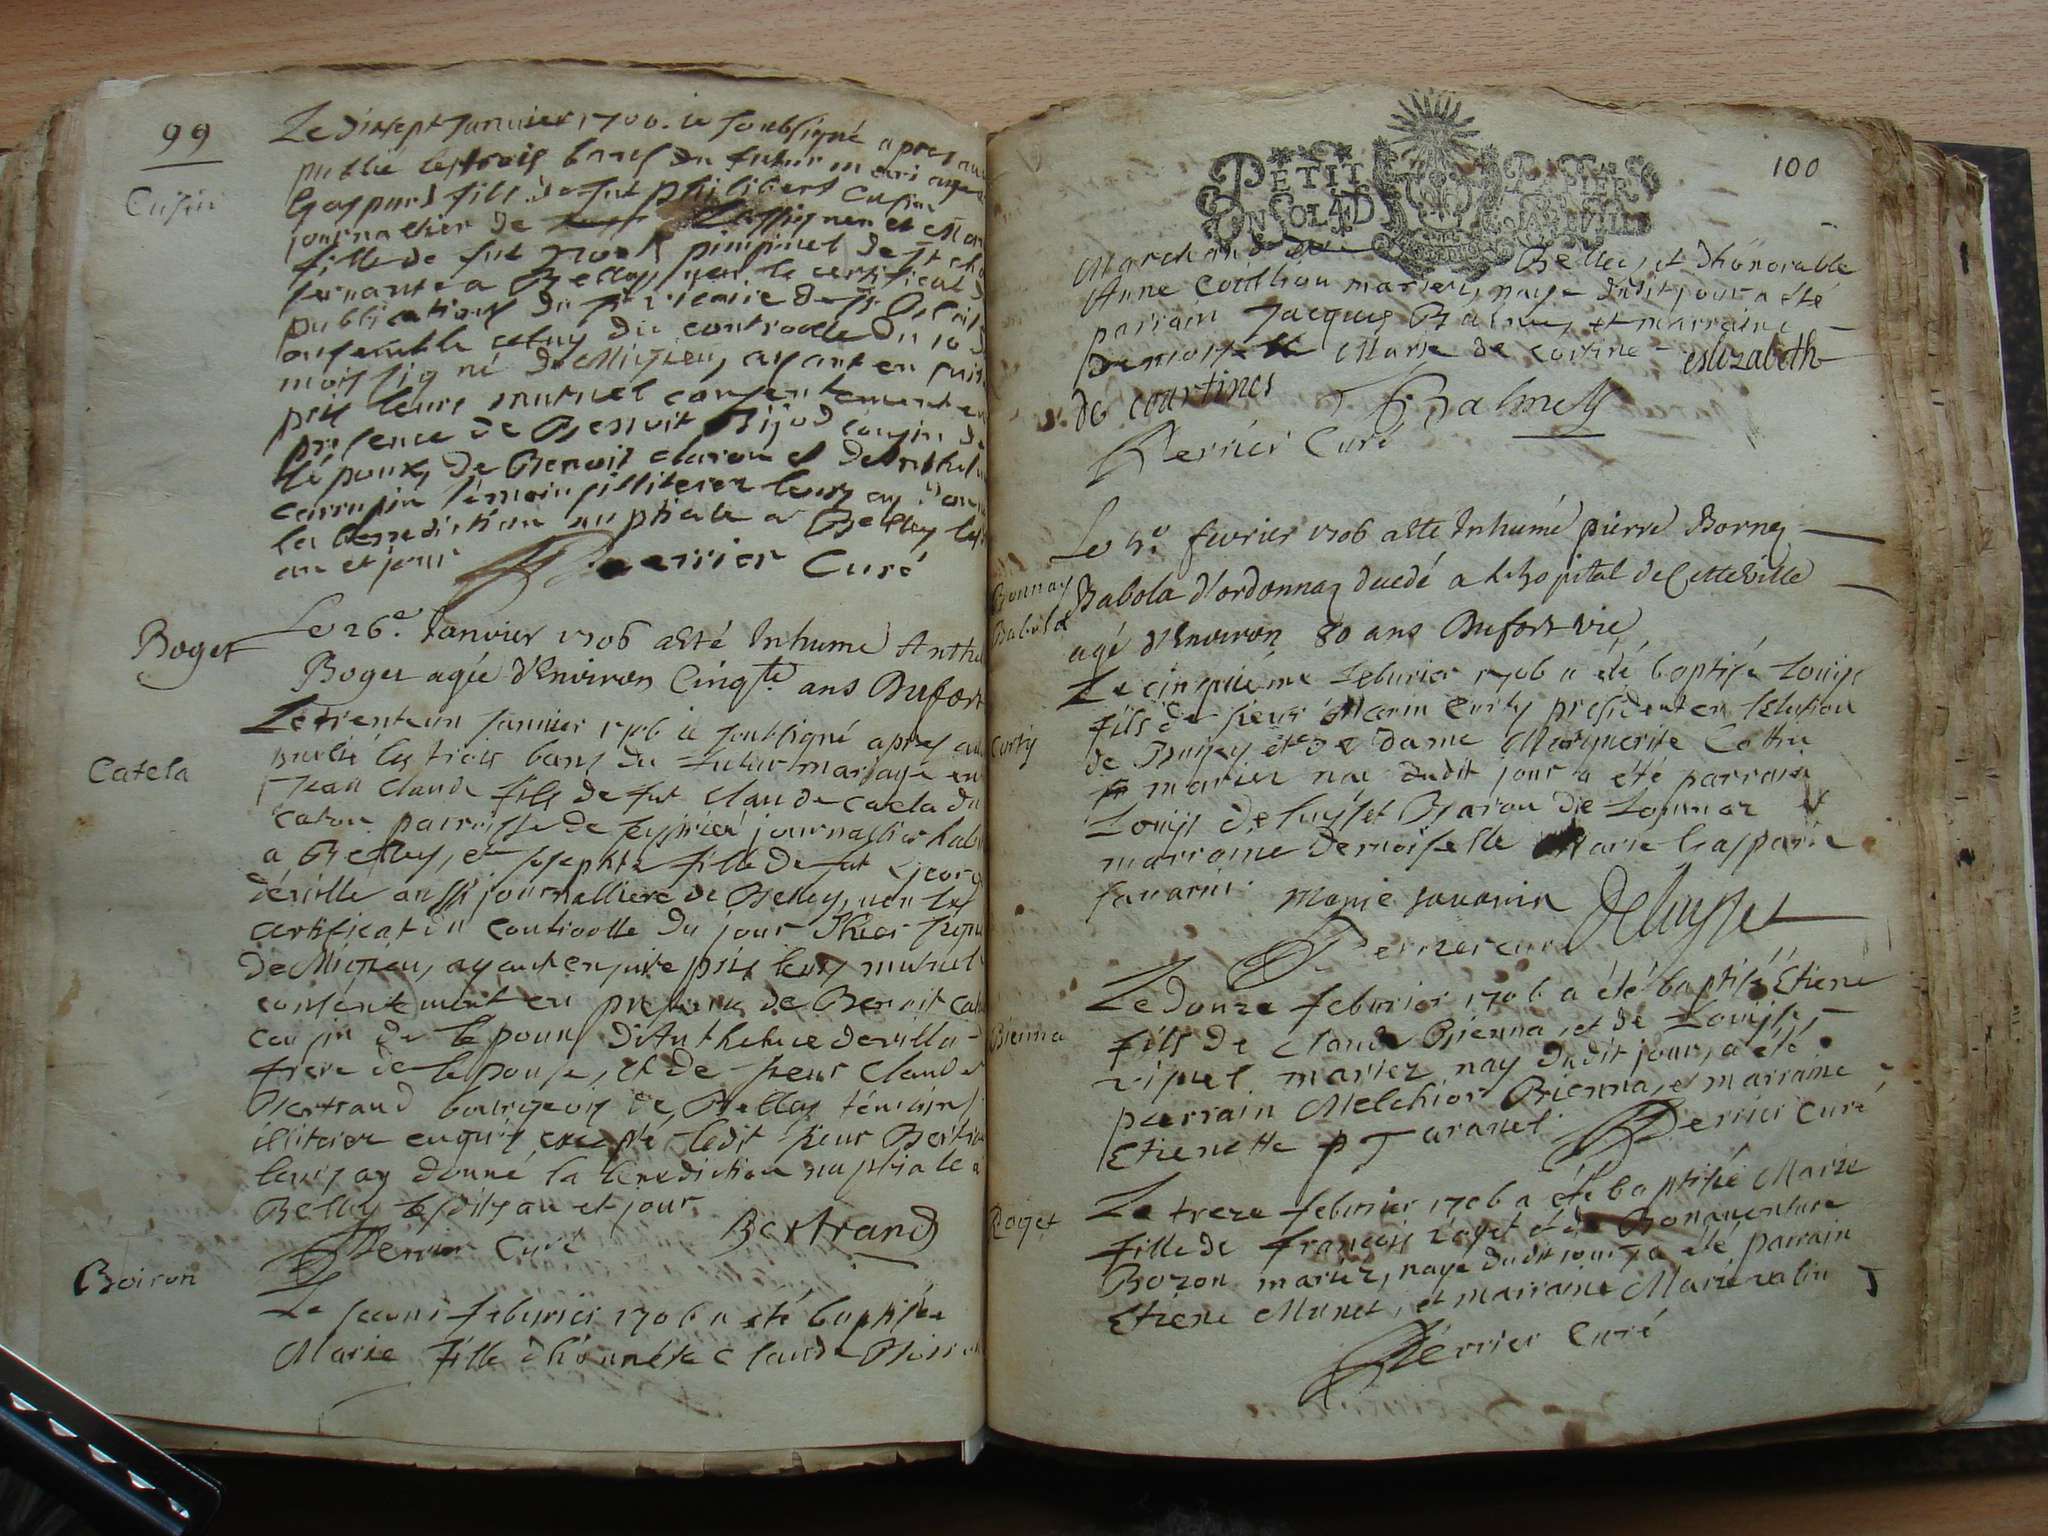 99
Cusin
Le dixsept Janvier 1706. ie soubsigné apres au
publié les trois bans du futur mariage
Gaspard fils de fut philibert Cusin
journallier de et Mar
fille de fut pimpinel de st
servante a Belley, veu le certificat d
publications du Sr vicaire de
ensemble celuy du controlle du 10 d
mois signé De Migieu, ayant en suitte
pris leurs mutuel consentement en
presence de Benoit Bijod cousin de
l'époux, de Benoit claron et
temoins illiterez leurs ay
la benediction nuptiale a Belley les
an et jour Perrier Curé
Boget
Le 26e. Janvier 1706 a Esté Inhumé Anthel
Boget agée d'Environ Cinqte. ans Dufort
Catela
Le trentun Janvier 1706 ie soubsigné apres au
publié les trois bans du futur mariage en
Jean claude fils de fut claude catela du
caton parroisse de journallier habi
a Belley, et josephte fille de fut george
deville aussi journalliere de Belley, veu les
certificat du controolle du jour d'hier signé
De Migieu, ayant ensuite pris leurs mutuel
consentement en presence de Benoit cat
cousin de lepoux d'Anthelme deville
frere de lepouse, et de sieur Claude
Bertrand bourgeois de Belley témoins
illiterez enquis excepté ledit sieur Bertra
leurs ay donné la benediction nuptiale a
Belley lesdits an et jour
Perrier Curé Bertrand
Boiron
Le second feburier 1706 a été baptisée
Marie fille d'honnéte Claude Boiron
100
PETIT PAPIER
ON SOL 4D LA FVILLE
Marchand de Belley, et d'honorable
Anne mariez, naye dudit jour a été
parrain Jacques Balme, et marraine
Demoiselle Marie de cortine – eslizabeth
de courtines J Balmey
Perrier Curé
Bonnay
Babola
Le 4e. fevrier 1706 a Esté Inhumé pierre Bornay
Babola d'ordonnaz decedé a lhopital de Cette ville
agé d'Environ 80 ans Dufort vic
Curty
Le cinquiéme feburier 1706 a été baptisé Louys
fils de sieur Marin Curty president en l'election
de Bugey et de dame Marguerite Cottin
mariez nay dudit jour a été parrain
Louys deluysset Baron de
marraine demoiselle Marie Gasparde
savarin. Marie savarin Deluysset
Perrier curé
Bienna
Le douze feburier 1706 a été baptisé Etiene
fils de claude Bienna, et de Louise
ripuel mariez nay dudit jour, a été
parrain Melchior Bienna, et marraine
Etienette p Taravel. Perrier Curé
Roget
Le treze feburier 1706 a été baptisée Marie
fille de francois roget et de Bonaventure
Bozon mariez, naye dudit jour, a été parrain
Etiene Munet, et marraine Marie valin
Perrier Curé